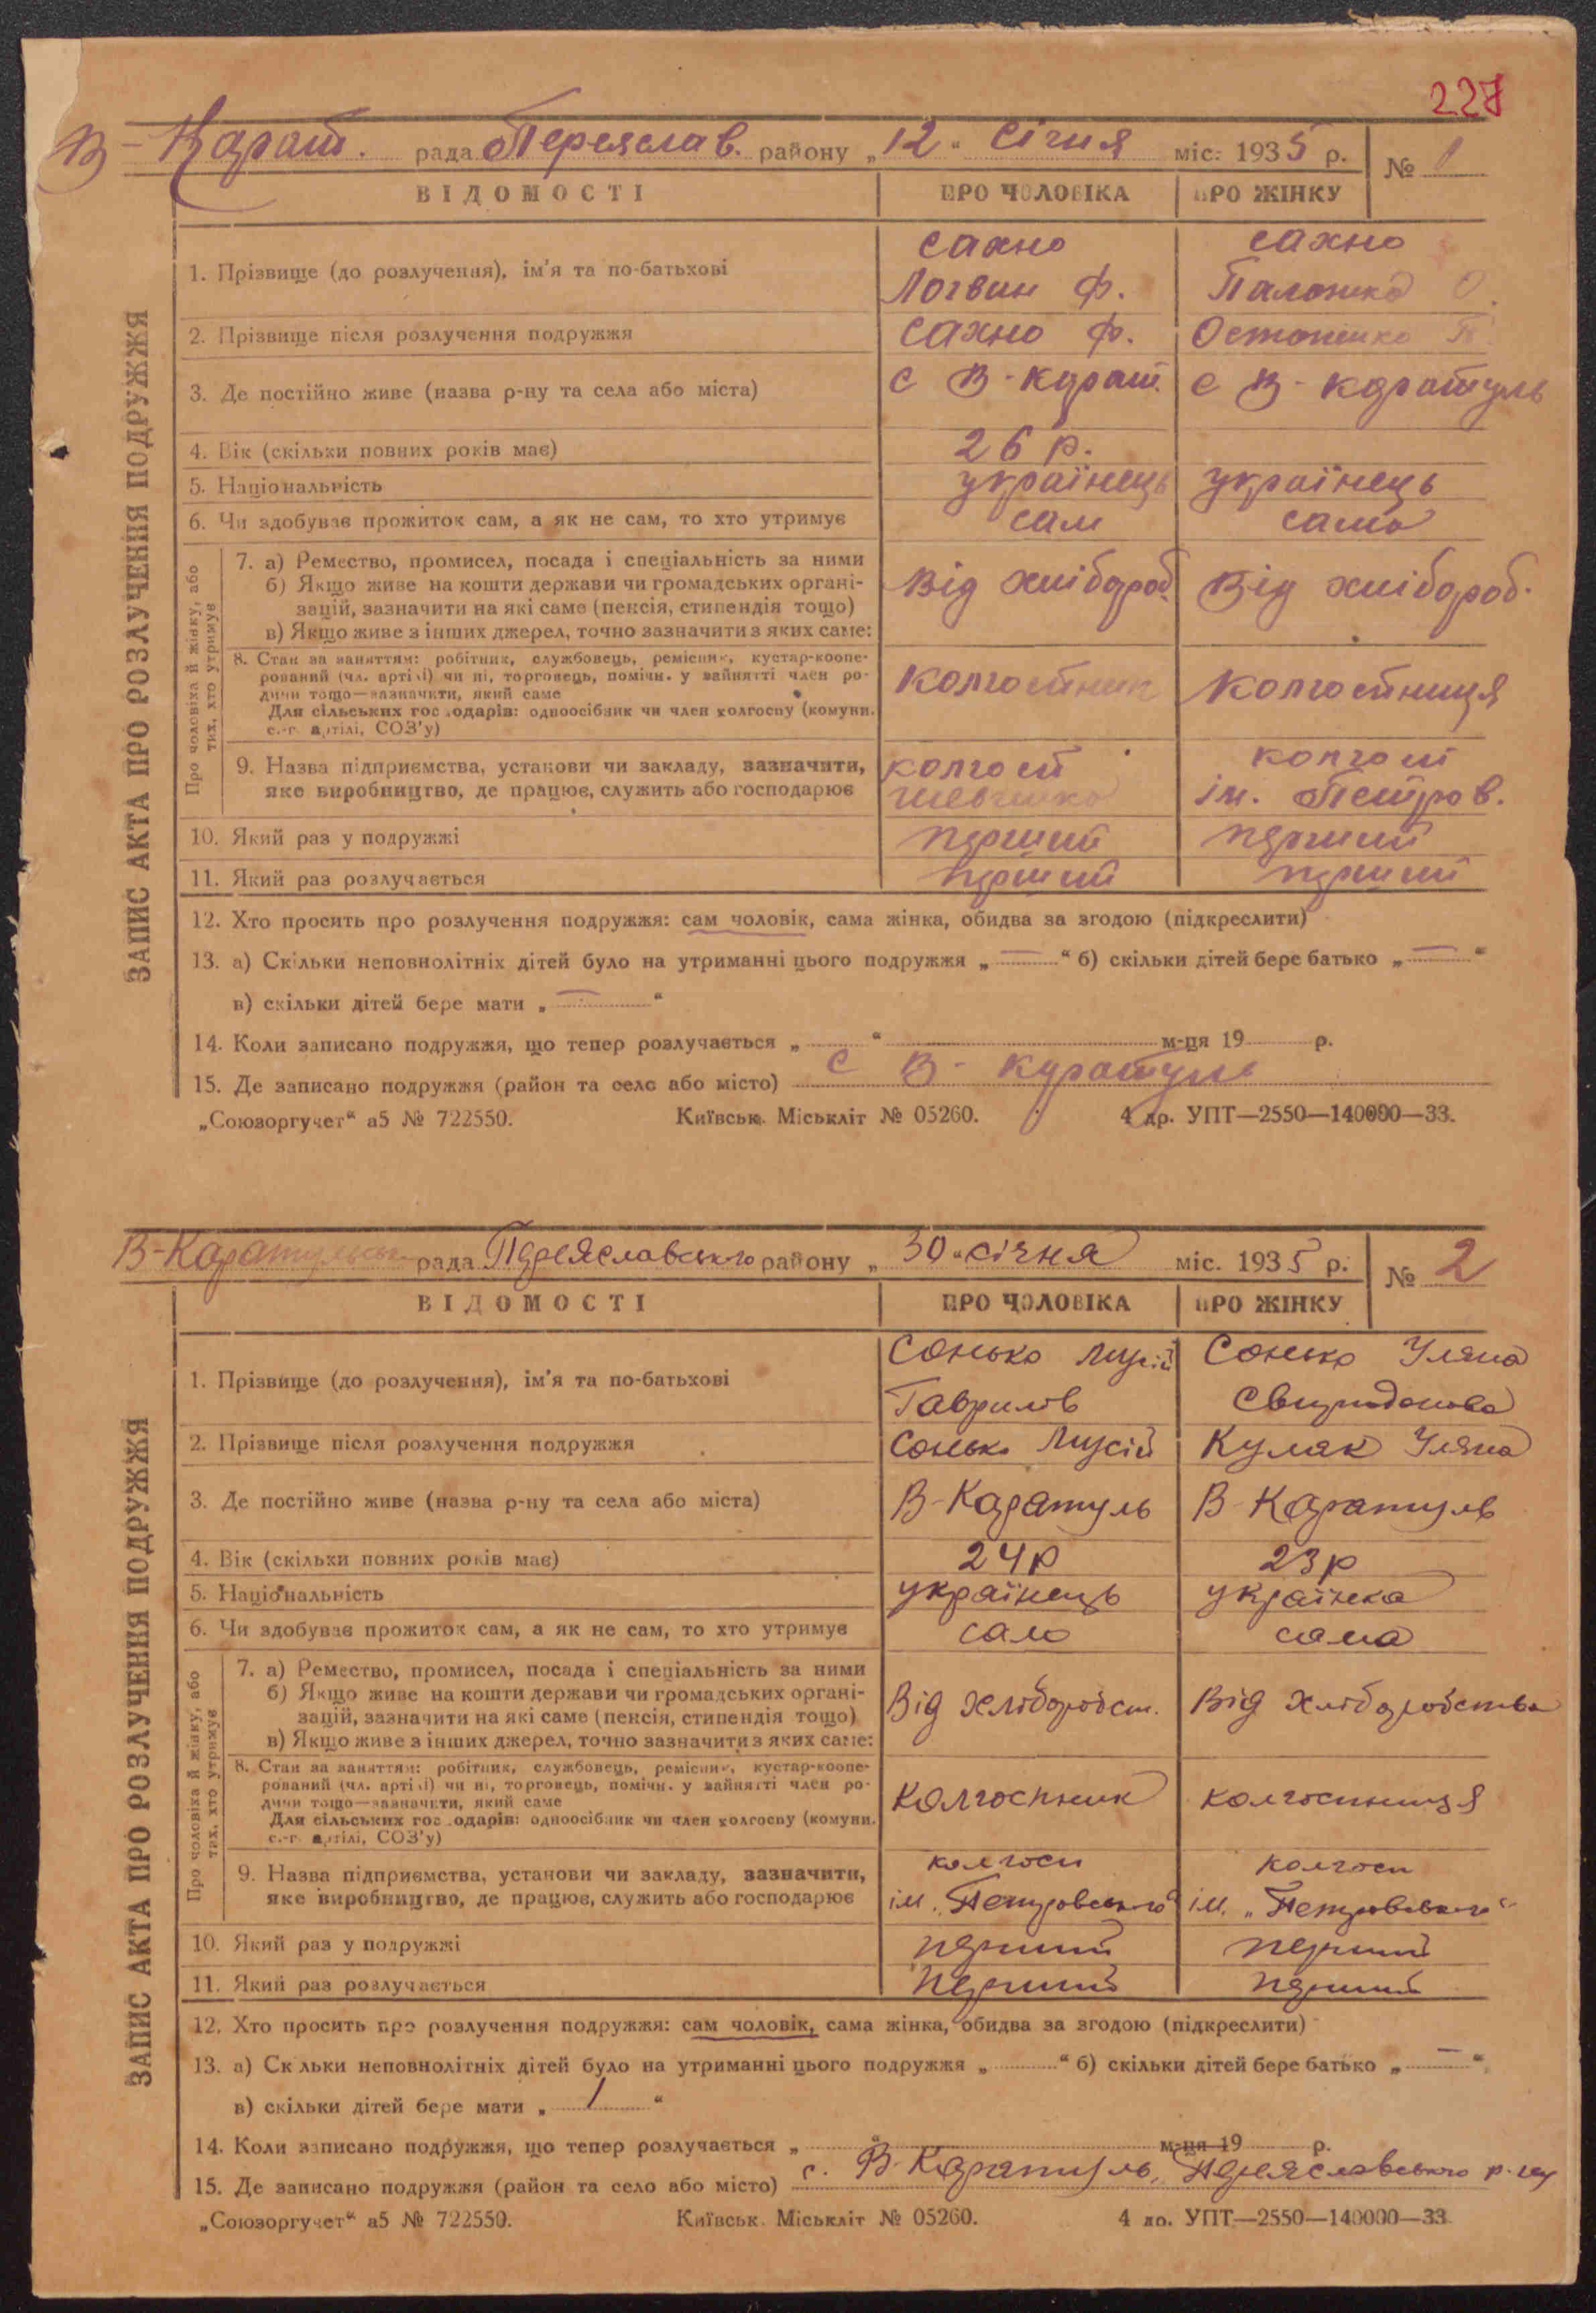 227
В-Карат. рада Переяслав. району „12“ Січня міс. 1935 р. № 1
ВІДОМОСТІ ПРО ЧОЛОВІКА ПРО ЖІНКУ
ЗАПИС АКТА ПРО РОЗЛУЧЕННЯ ПОДРУЖЖЯ
1. Прізвище (до розлучення), ім'я та по-батькові
сахно сахно
Логвин Ф. Палажка О.
2. Прізвище після розлучення подружжя сахно Ф. Остапенко П.
3. Де постійно живе (назва р-ну та села або міста) с В-Карат. с В-Каратуль
4. Вік (скільки повних років має) 26 р.
5. Національність українець українець
6. Чи здобуває прожиток сам, а як не сам, то хто утримує сам сама
Про чоловіка й жінку, або
тих, хто утримує
7. а) Ремество, промисел, посада і спеціальність за ними
б) Якщо живе на кошти держави чи громадських органі-
зацій, зазначити на які саме (пенсія, стипендія тощо)
в) Якщо живе з інших джерел, точно зазначити з яких саме:
Від хлібороб. Від хлібороб.
8. Стан за заняттям: робітник, службовець, ремісник, кустар-коопе-
рований (чл. артілі) чи ні, торговець, помічн. у зайнятті член ро-
дини тощо—зазначити, який саме
Для сільських господарів: одноосібник чи член колгоспу (комуни,
с.-г. артілі, СОЗ'у)
колгоспник колгоспниця
9. Назва підприємства, установи чи закладу, зазначити,
яке виробництво, де працює, служить або господарює
колгосп колгосп
шевченко ім. Петров.
10. Який раз у подружжі перший перший
11. Який раз розлучається перший перший
12. Хто просить про розлучення подружжя: сам чоловік, сама жінка, обидва за згодою (підкреслити)
13. а) Скільки неповнолітніх дітей було на утриманні цього подружжя „—“ б) скільки дітей бере батько „—“
в) скільки дітей бере мати „—“
14. Коли записано подружжя, що тепер розлучається „ “ м-ця 19 р.
15. Де записано подружжя (район та село або місто) с В-Каратуль
„Союзоргучет“ а5 № 722550. Київськ. Міськліт № 05260. 4 др. УПТ—2550—140000—33.
В-Каратульськ рада Переяславського району „30“ січня міс. 1935 р. № 2
ВІДОМОСТІ ПРО ЧОЛОВІКА ПРО ЖІНКУ
ЗАПИС АКТА ПРО РОЗЛУЧЕННЯ ПОДРУЖЖЯ
1. Прізвище (до розлучення), ім'я та по-батькові
Сонько Мусій Сонько Уляна
Гаврилів Свиридонова
2. Прізвище після розлучення подружжя Сонько Мусій Куляк Уляна
3. Де постійно живе (назва р-ну та села або міста) В-Каратуль В-Каратуль
4. Вік (скільки повних років має) 24р 23р
5. Національність українець українка
6. Чи здобуває прожиток сам, а як не сам, то хто утримує сам сама
Про чоловіка й жінку, або
тих, хто утримує
7. а) Ремество, промисел, посада і спеціальність за ними
б) Якщо живе на кошти держави чи громадських органі-
зацій, зазначити на які саме (пенсія, стипендія тощо)
в) Якщо живе з інших джерел, точно зазначити з яких саме:
Від хліборобст. Від хліборобства
8. Стан за заняттям: робітник, службовець, ремісник, кустар-коопе-
рований (чл. артілі) чи ні, торговець, помічн. у зайнятті член ро-
дини тощо—зазначити, який саме
Для сільських господарів: одноосібник чи член колгоспу (комуни,
с.-г. артілі, СОЗ'у)
колгоспник колгоспниця
9. Назва підприємства, установи чи закладу, зазначити,
яке виробництво, де працює, служить або господарює
колгосп колгосп
ім. „Петровського“ ім. „Петровського“
10. Який раз у подружжі перший перший
11. Який раз розлучається перший перший
12. Хто просить про розлучення подружжя: сам чоловік, сама жінка, обидва за згодою (підкреслити)
13. а) Скільки неповнолітніх дітей було на утриманні цього подружжя „ “ б) скільки дітей бере батько „—“
в) скільки дітей бере мати „1“
14. Коли записано подружжя, що тепер розлучається „ “ м-ця 19 р.
15. Де записано подружжя (район та село або місто) с. В-Каратуль, Переяславського р-ну
„Союзоргучет“ а5 № 722550. Київськ. Міськліт № 05260. 4 до. УПТ—2550—140000—33